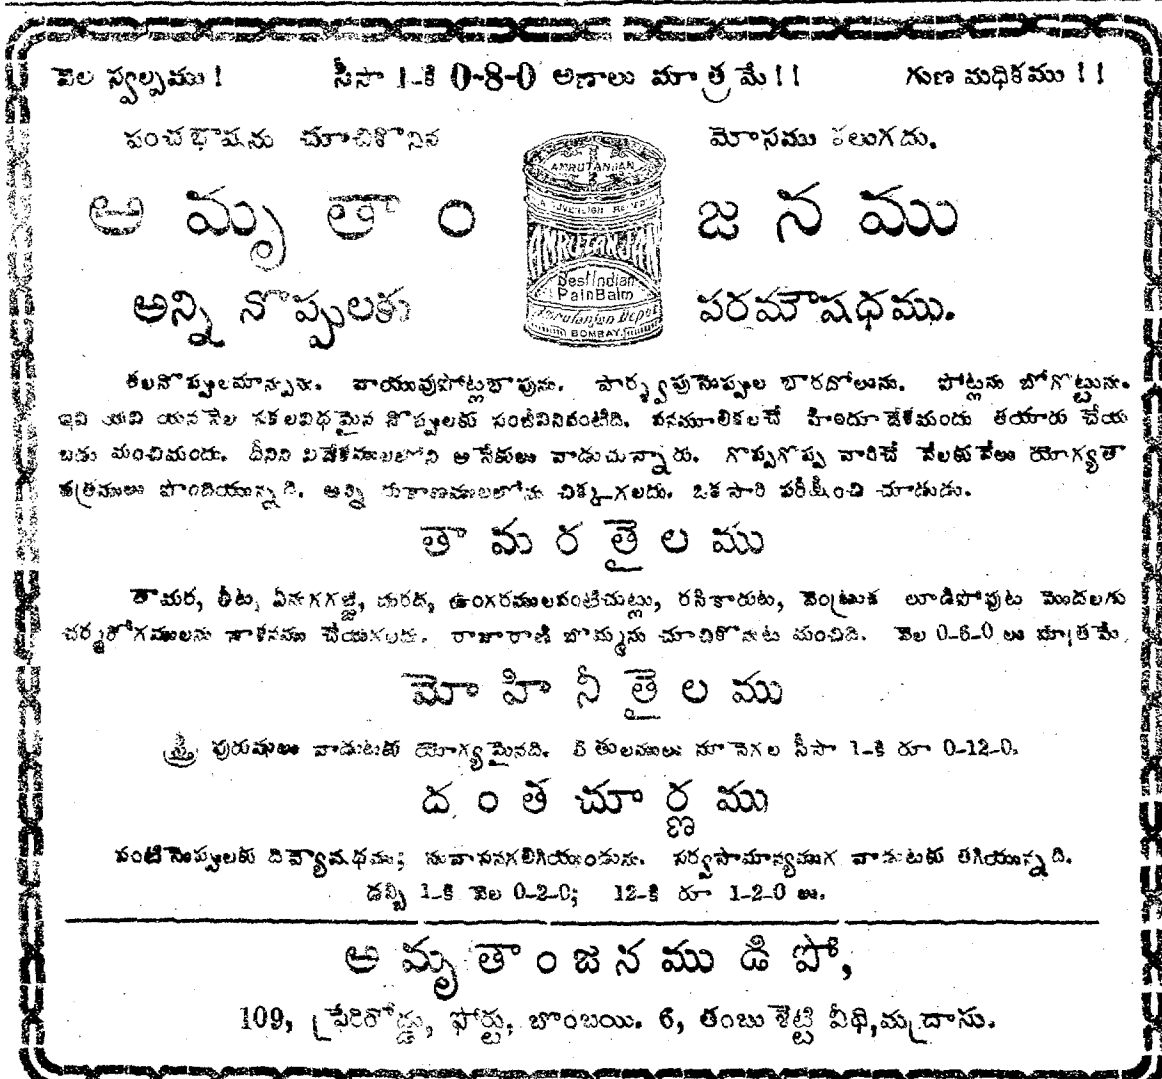 వెల స్వల్పము! సీసా 1-కి 0-8-0 అణాలు మాత్రమే!! గుణ మధికము!!
పంచభాషను చూచికొనిన మోసము కలుగదు.
అమృతాంజనము
AMRUTANJAN
AMRUTANJAN
Best Indian
Pain Balm
Amrutanjan Depot
BOMBAY.
అన్ని నొప్పులకు పరమౌషధము.
తలనొప్పులమాన్పును. వాయువుపోట్లబాపును. పార్శ్వపునొప్పుల బారదోలును. పోట్లను బోగొట్టును.
ఇవి యవి యననేల సకలవిధమైన నొప్పులకు సంజీవినివంటిది. వనమూలికలచే హిందూదేశమందు తయారు చేయ
బడు మంచిమందు. దీనిని విదేశములలోని అనేకులు వాడుచున్నారు. గొప్పగొప్ప వారిచే వేలకువేలు యోగ్యతా
పత్రములు పొందియున్నది. అన్ని దుకాణములలోను చిక్కగలదు. ఒకసారి పరీక్షించి చూడుడు.
తామరతైలము
తామర, తీట, ఏనుగగజ్జి, దురద, ఉంగరములవంటిచుట్లు, రసికారుట, వెంట్రుక లూడిపోవుట మొదలగు
చర్మరోగములను నాశనము చేయగలదు. రాజారాణి బొమ్మను చూచికొనుట మంచిది. వెల 0-6-0 లు మాత్రమే.
మోహినీతైలము
స్త్రీ పురుషులు వాడుటకు యోగ్యమైనది. 5 తులములు నూనెగల సీసా 1-కి రూ 0-12-0.
దంతచూర్ణము
పంటినొప్పులకు దివ్యౌషధము; సువాసనగలిగియుండును. సర్వసామాన్యముగ వాడుటకు తగియున్నది.
డబ్బీ 1-కి వెల 0-2-0; 12-కి రూ 1-2-0 లు.
అమృతాంజనము డిపో,
109, ఫ్రేరిరోడ్డు, ఫోర్టు, బొంబయి. 6, తంబుశెట్టి వీథి,మద్రాసు.